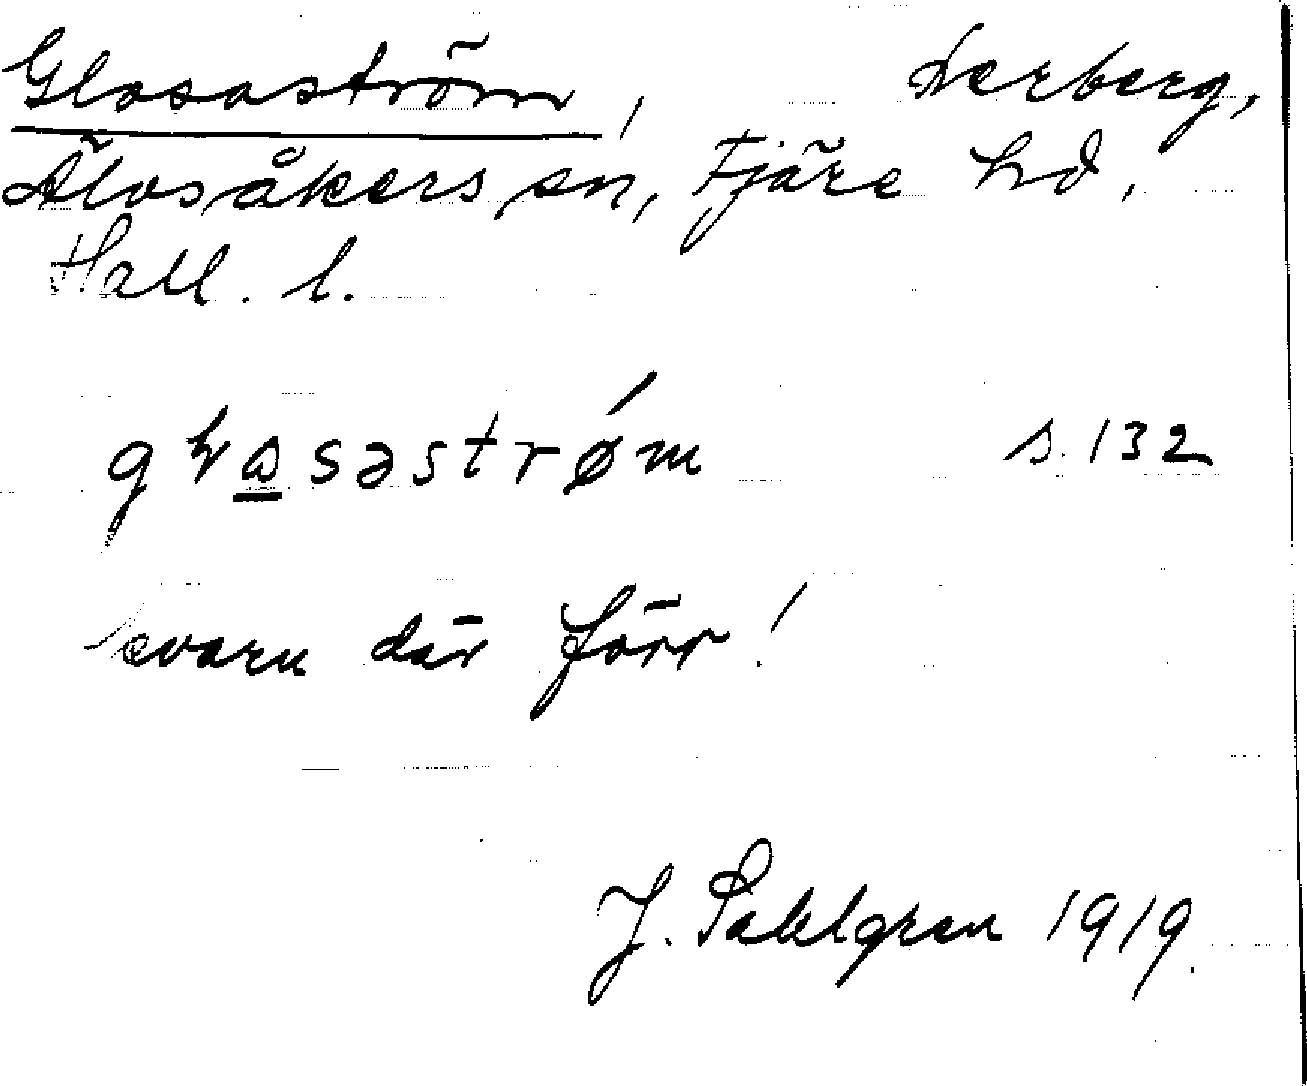 Glosaström, Lerberg,
Älvsåkers sn, Fjäre hd,
Hall. l.
s. 132
kvarn där förr!
J. Sahlgren 1919.